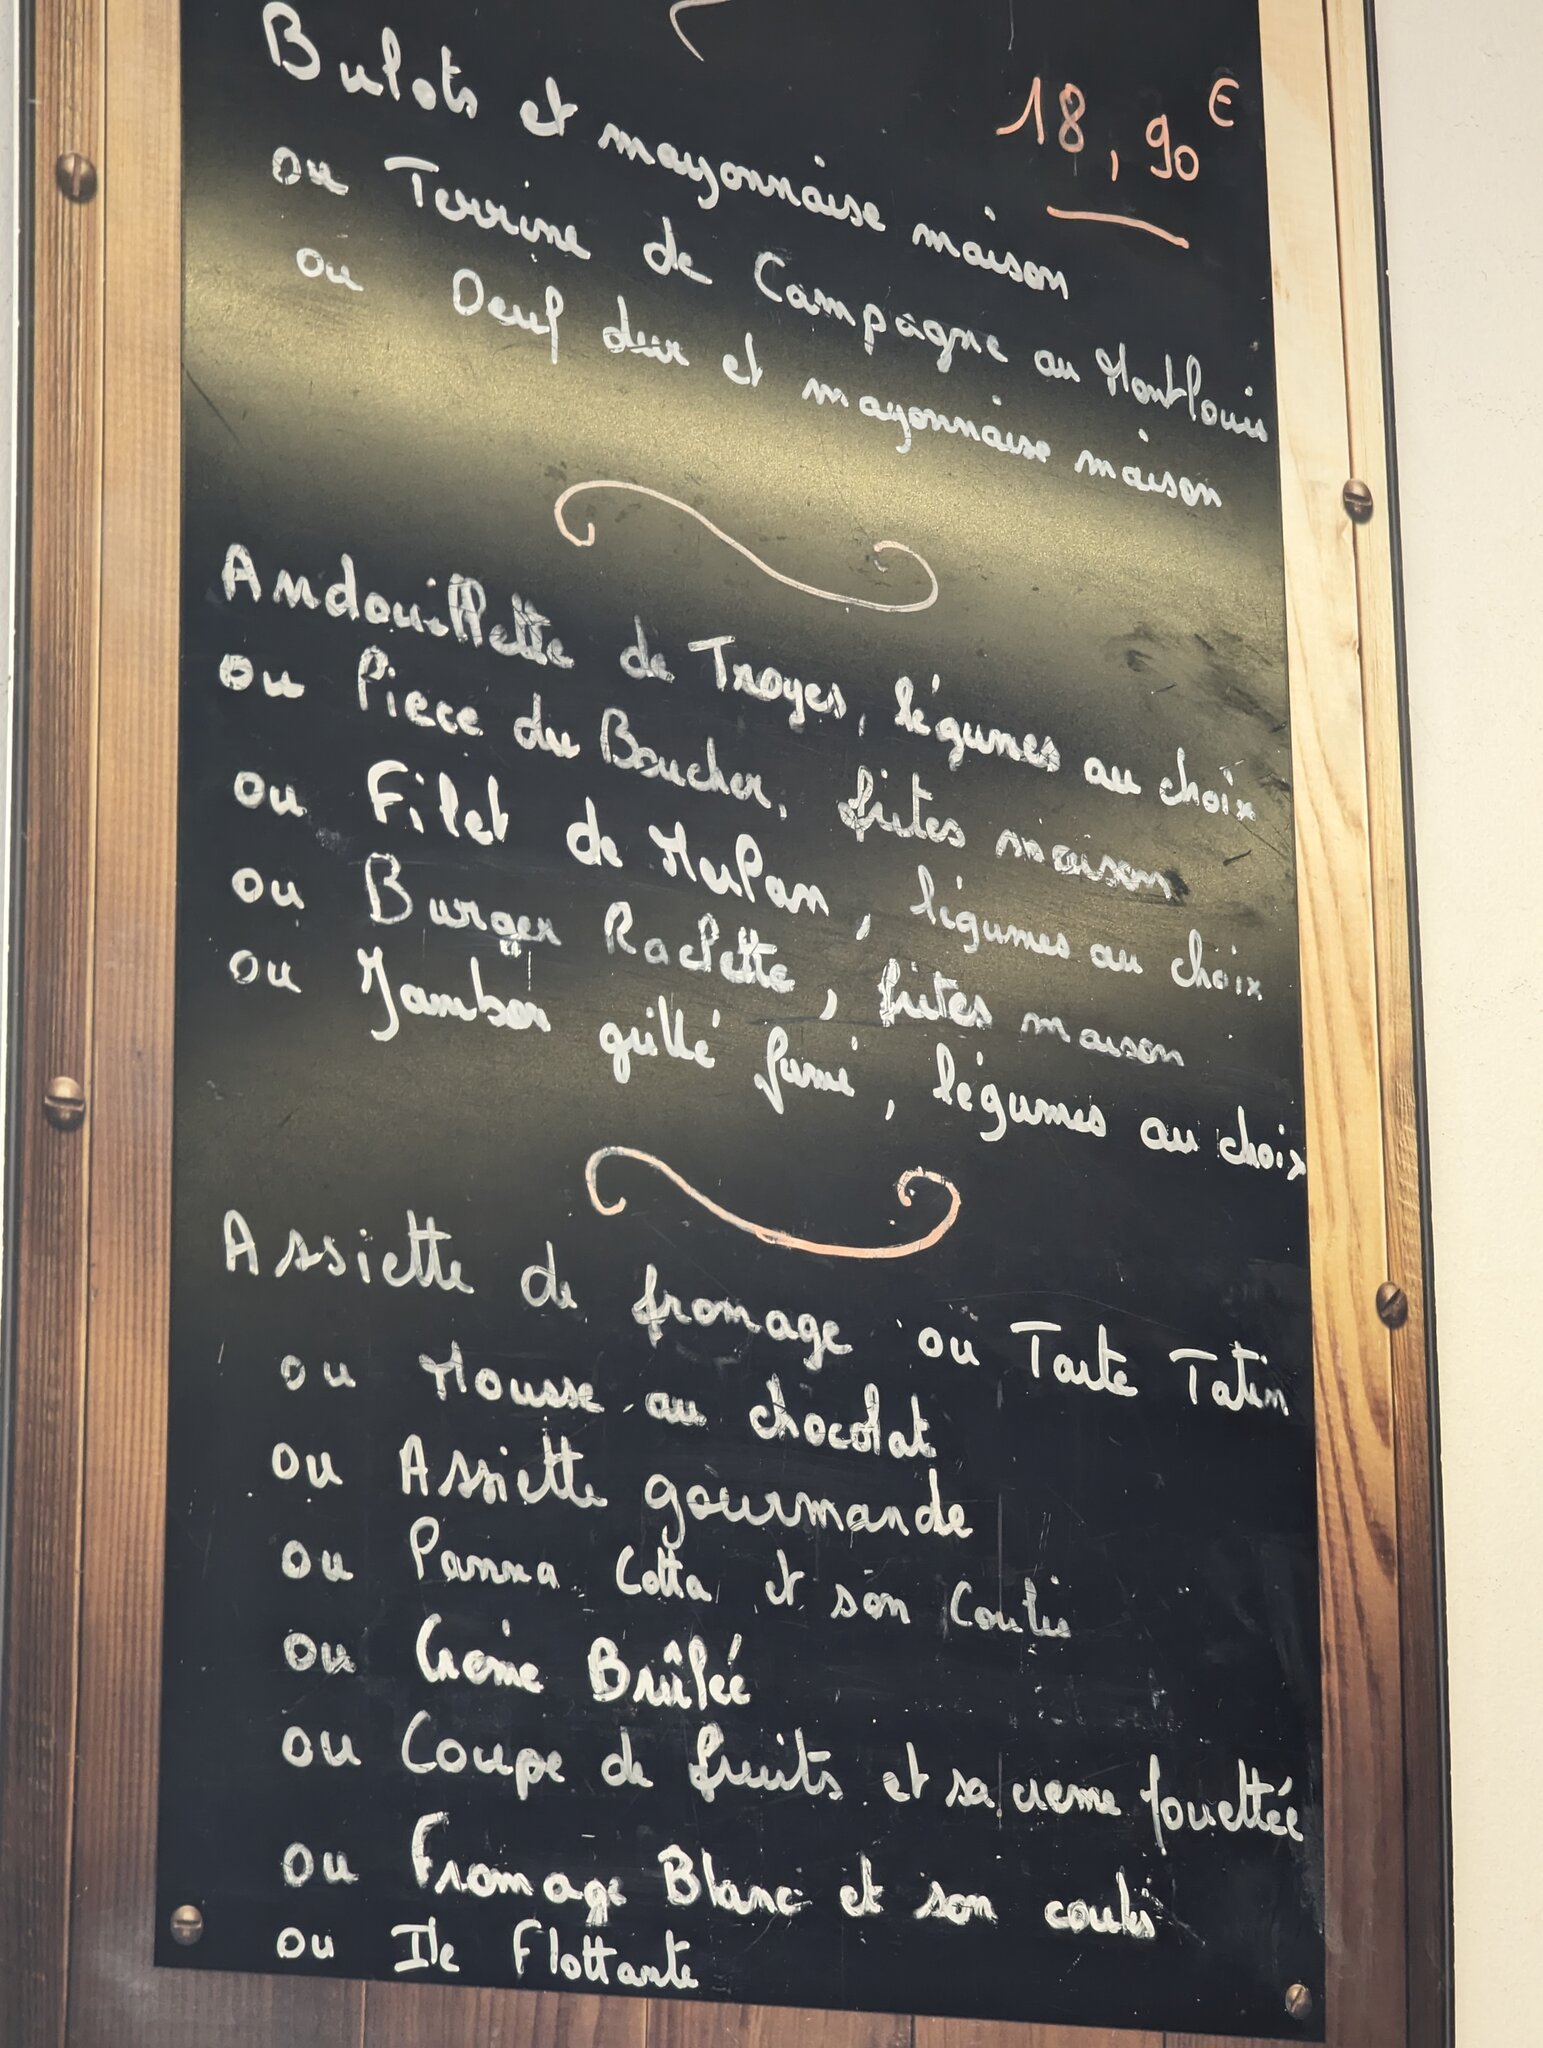 18,90€
Bulots et mayonnaise maison
ou Terrine de Campagne au Montlouis
ou Oeuf dur et mayonnaise maison
Andouillette de Troyes, légumes au choix
ou Pièce du Boucher, frites maison
ou Filet de Merlan, légumes au choix
ou Burger Raclette, frites maison
ou Jambon grillé fumé, légumes au choix
Assiette de fromage ou Tarte Tatin
ou Mousse au chocolat
ou Assiette gourmande
ou Panna Cotta et son Coulis
ou Crème Brûlée
ou Coupe de fruits et sa creme fouettée
ou Fromage Blanc et son coulis
ou Ile Flottante